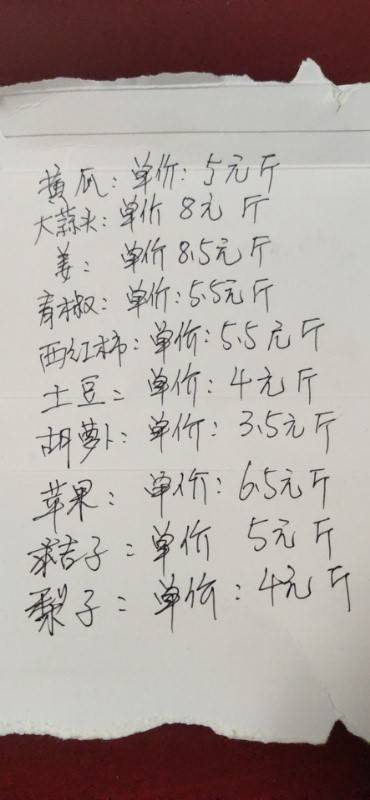 黄瓜：单价：5元斤
大蒜头：单价 8元 斤
姜： 单价 8.5元斤
青椒：单价：5.5元斤
西红柿：单价：5.5元斤
土豆： 单价：4元斤
胡萝卜：单价：3.5元斤
苹果： 单价：6.5元斤
桔子：单价 5元 斤
梨子：单价：4元斤